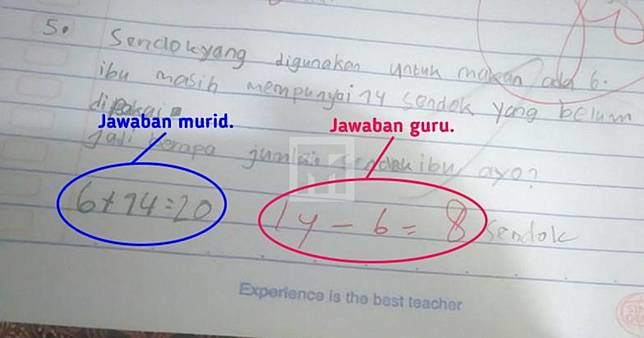 5. Sendok yang digunakan untuk makan ada 6.
ibu masih mempunyai 14 sendok yang belum
dipakai.
Jawaban murid.
Jawaban guru.
Jadi berapa jumlah sendok ibu ayo?
6+14=20
14 - 6 = 8 Sendok
Experience is the best teacher